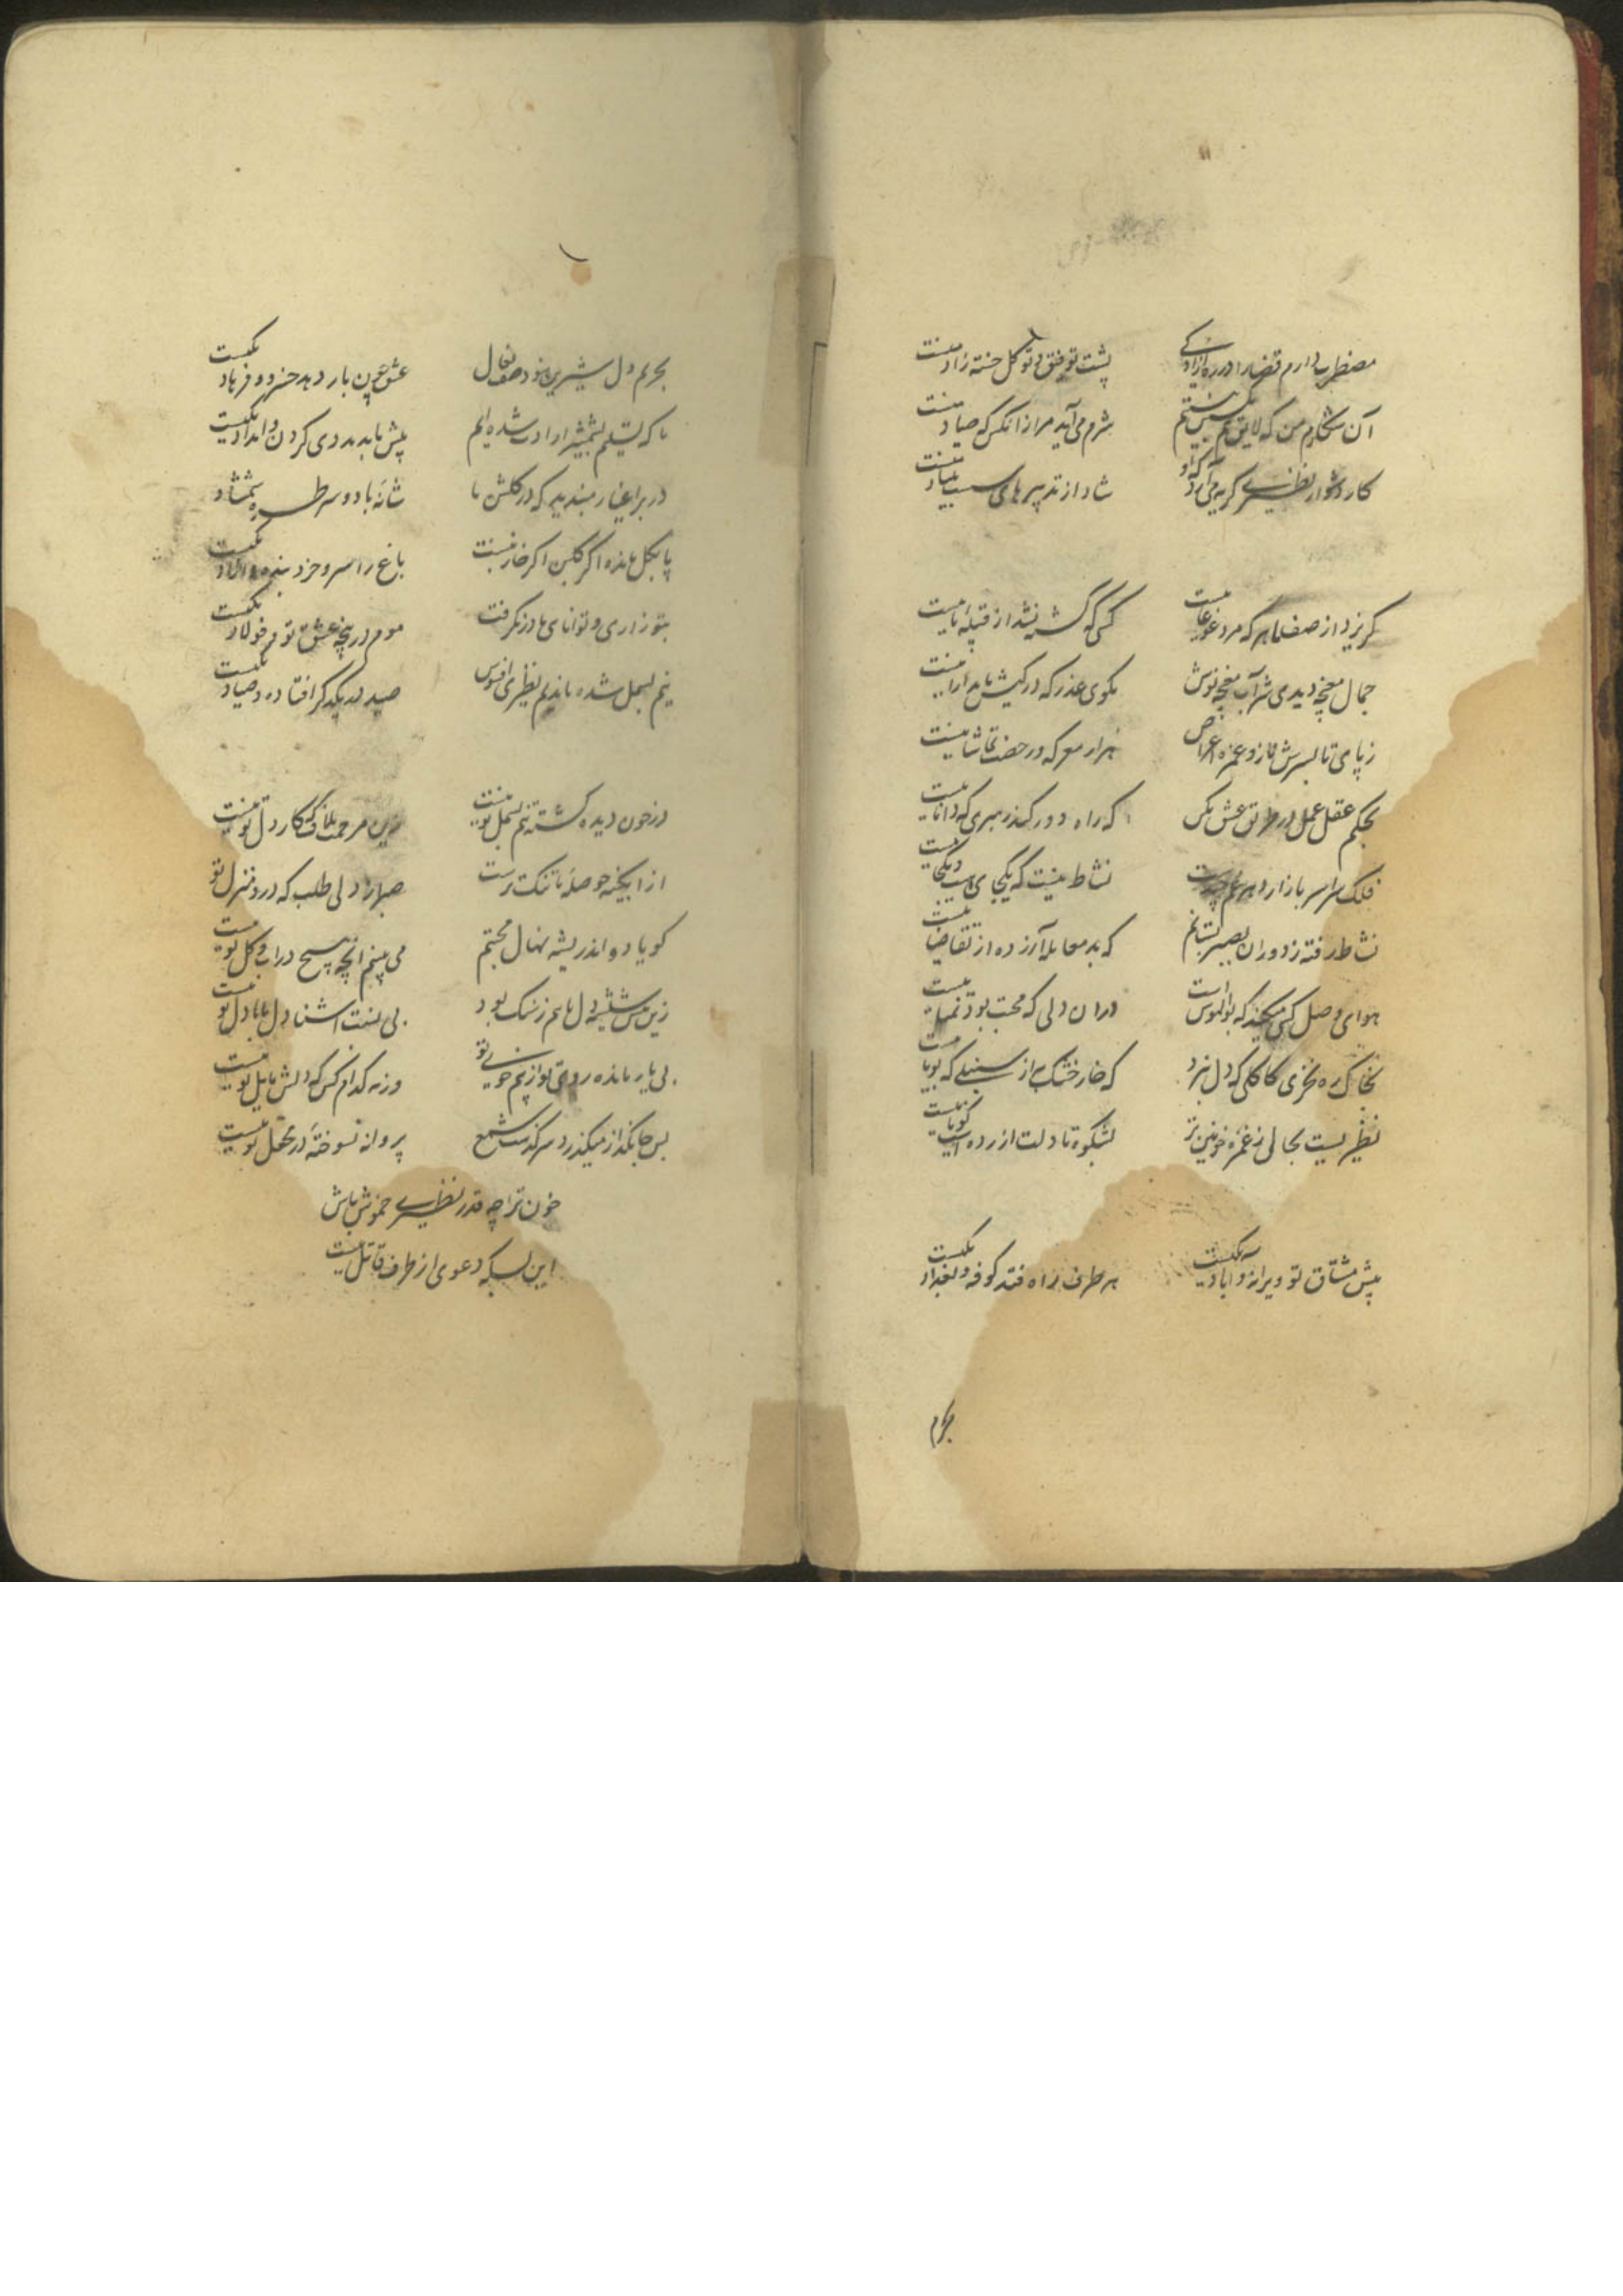 مضطرب دارم قضا را در ره آزادکی پشت توفیق و توکل خسته زاد منست
آن شکارم من که لایق هم بکشتن نیستم شرم می‌آید مرا زانکس که صیاد منست
کار دشوار نظیری گریه می‌آرد که او شاد از تدبیرهای سست بنیاد منست
گریزد از صف ما هر که مرد غوغا نیست کسی که کشته نشد از قبیله ما نیست
جمال مغبچه دیدی شراب مغبچه نوش مگوی عذر که در کیش ما مدارا نیست
ز پای تا بسرش ناز و غمزه اعراض هزار معرکه و رخصت تماشا نیست
بحکم عقل عمل در طریق عشق مکن که راه دور کند رهبری که دانا نیست
فلک سراسر بازار دهر غم چیدست نشاط نیست که یکجای هست و یکجا نیست
نشاط رفته ز دوران بصبر بستانم که بد معامله آزرده از تقاضا نیست
هوای وصل کسی میکند که بوالهوس است دران دلی که محبت بود تمنا نیست
بخاک ره نخری کاکلی که دل نبرد که خار خشک به از سنبلی که بویا نیست
نظیر نیست بحالی ز غمزه خونین تر بشکوه تا دلت آزرده است گویا نیست
پیش مشتاق تو ویرانه و آباد یکیست هر طرف راه فتد کوفه و بغداد یکیست
بحرم
بحریم دل شیرین نبود صف نعال عشق چون بار دهد خسرو و فرهاد یکیست
ما که تسلیم بشمشیر ارادت شده‌ایم پیش ما بد مددی کردن و امداد یکیست
در بر اغیار مبندید که در گلشن ما شانهٔ باد و سر طره شمشاد
پا بگل مانده اگر گلبن اگر خار نیست باغ را سرو خرد بنده و آزاد یکیست
بتو زاری و توانایی ما در نگرفت موم در پنجه عشق تو و فولاد یکیست
نیم بسمل شده ماندیم نظیری افسوس صید بد یکدگر افتاده و صیاد یکیست
در خون دیده کشته تنم بسمل تو نیست زین مرحمت ملاف که کار دل تو نیست
از آبگینه حوصلهٔ ما تنک ترست صبر از دلی طلب که درو منزل تو
گویا دواند ریشه نهال محبتم می‌بینم آنچه هیچ در آب و گل تو نیست
زین پیش شیشهٔ دل ما هم ز سنگ بود بی نسبت آشنا دل ما با دل تو نیست
بی یار مانده روی تو از بیم خوی تو ورنه کدام کس که دلش مایل تو نیست
بس جانگداز میگذرد سرگذشت شمع پروانه نسوخته در محفل تو نیست
خون ترا چه قدر نظیری خموش باش
این بس که دعوی از طرف قاتل تو نیست